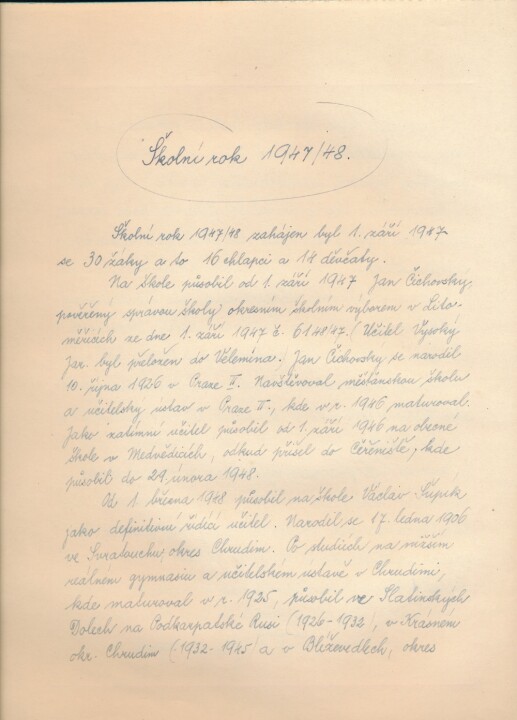 Školní rok 1947/48.
Školní rok 1947/48 zahájen byl 1. září 1947
se 30 žáky a to 16 chlapci a 14 děvčaty.
Na škole působil od 1. září 1947 Jan Čichovský,
pověřený správou školy okresním školním výborem v Lito-
měřicích ze dne 1. září 1947 č. 6148/47. (Učitel Vysoký
Jar. byl přeložen do Velemína.) Jan Čichovský se narodil
10. října 1926 v Praze II. Navštěvoval měšťanskou školu
a učitelský ústav v Praze II., kde v r. 1946 maturoval.
Jako zatímní učitel působil od 1. září 1946 na obecné
škole v Medvědicích, odkud přišel do Čeřeniště, kde
působil do 29. února 1948.
Od 1. března 1948 působil na škole Václav
jako definitivní řídící učitel. Narodil se 17. ledna 1906
ve Svratouchu, okres Chrudim. Po studiích na nižším
reálném gymnasiu a učitelském ústavě v Chrudimi,
kde maturoval v r. 1925, působil ve Slatinských
Dolech na Podkarpatské Rusi (1926-1932), v Krásném
okr. Chrudim (1932-1945) a v Blíževedlech, okres